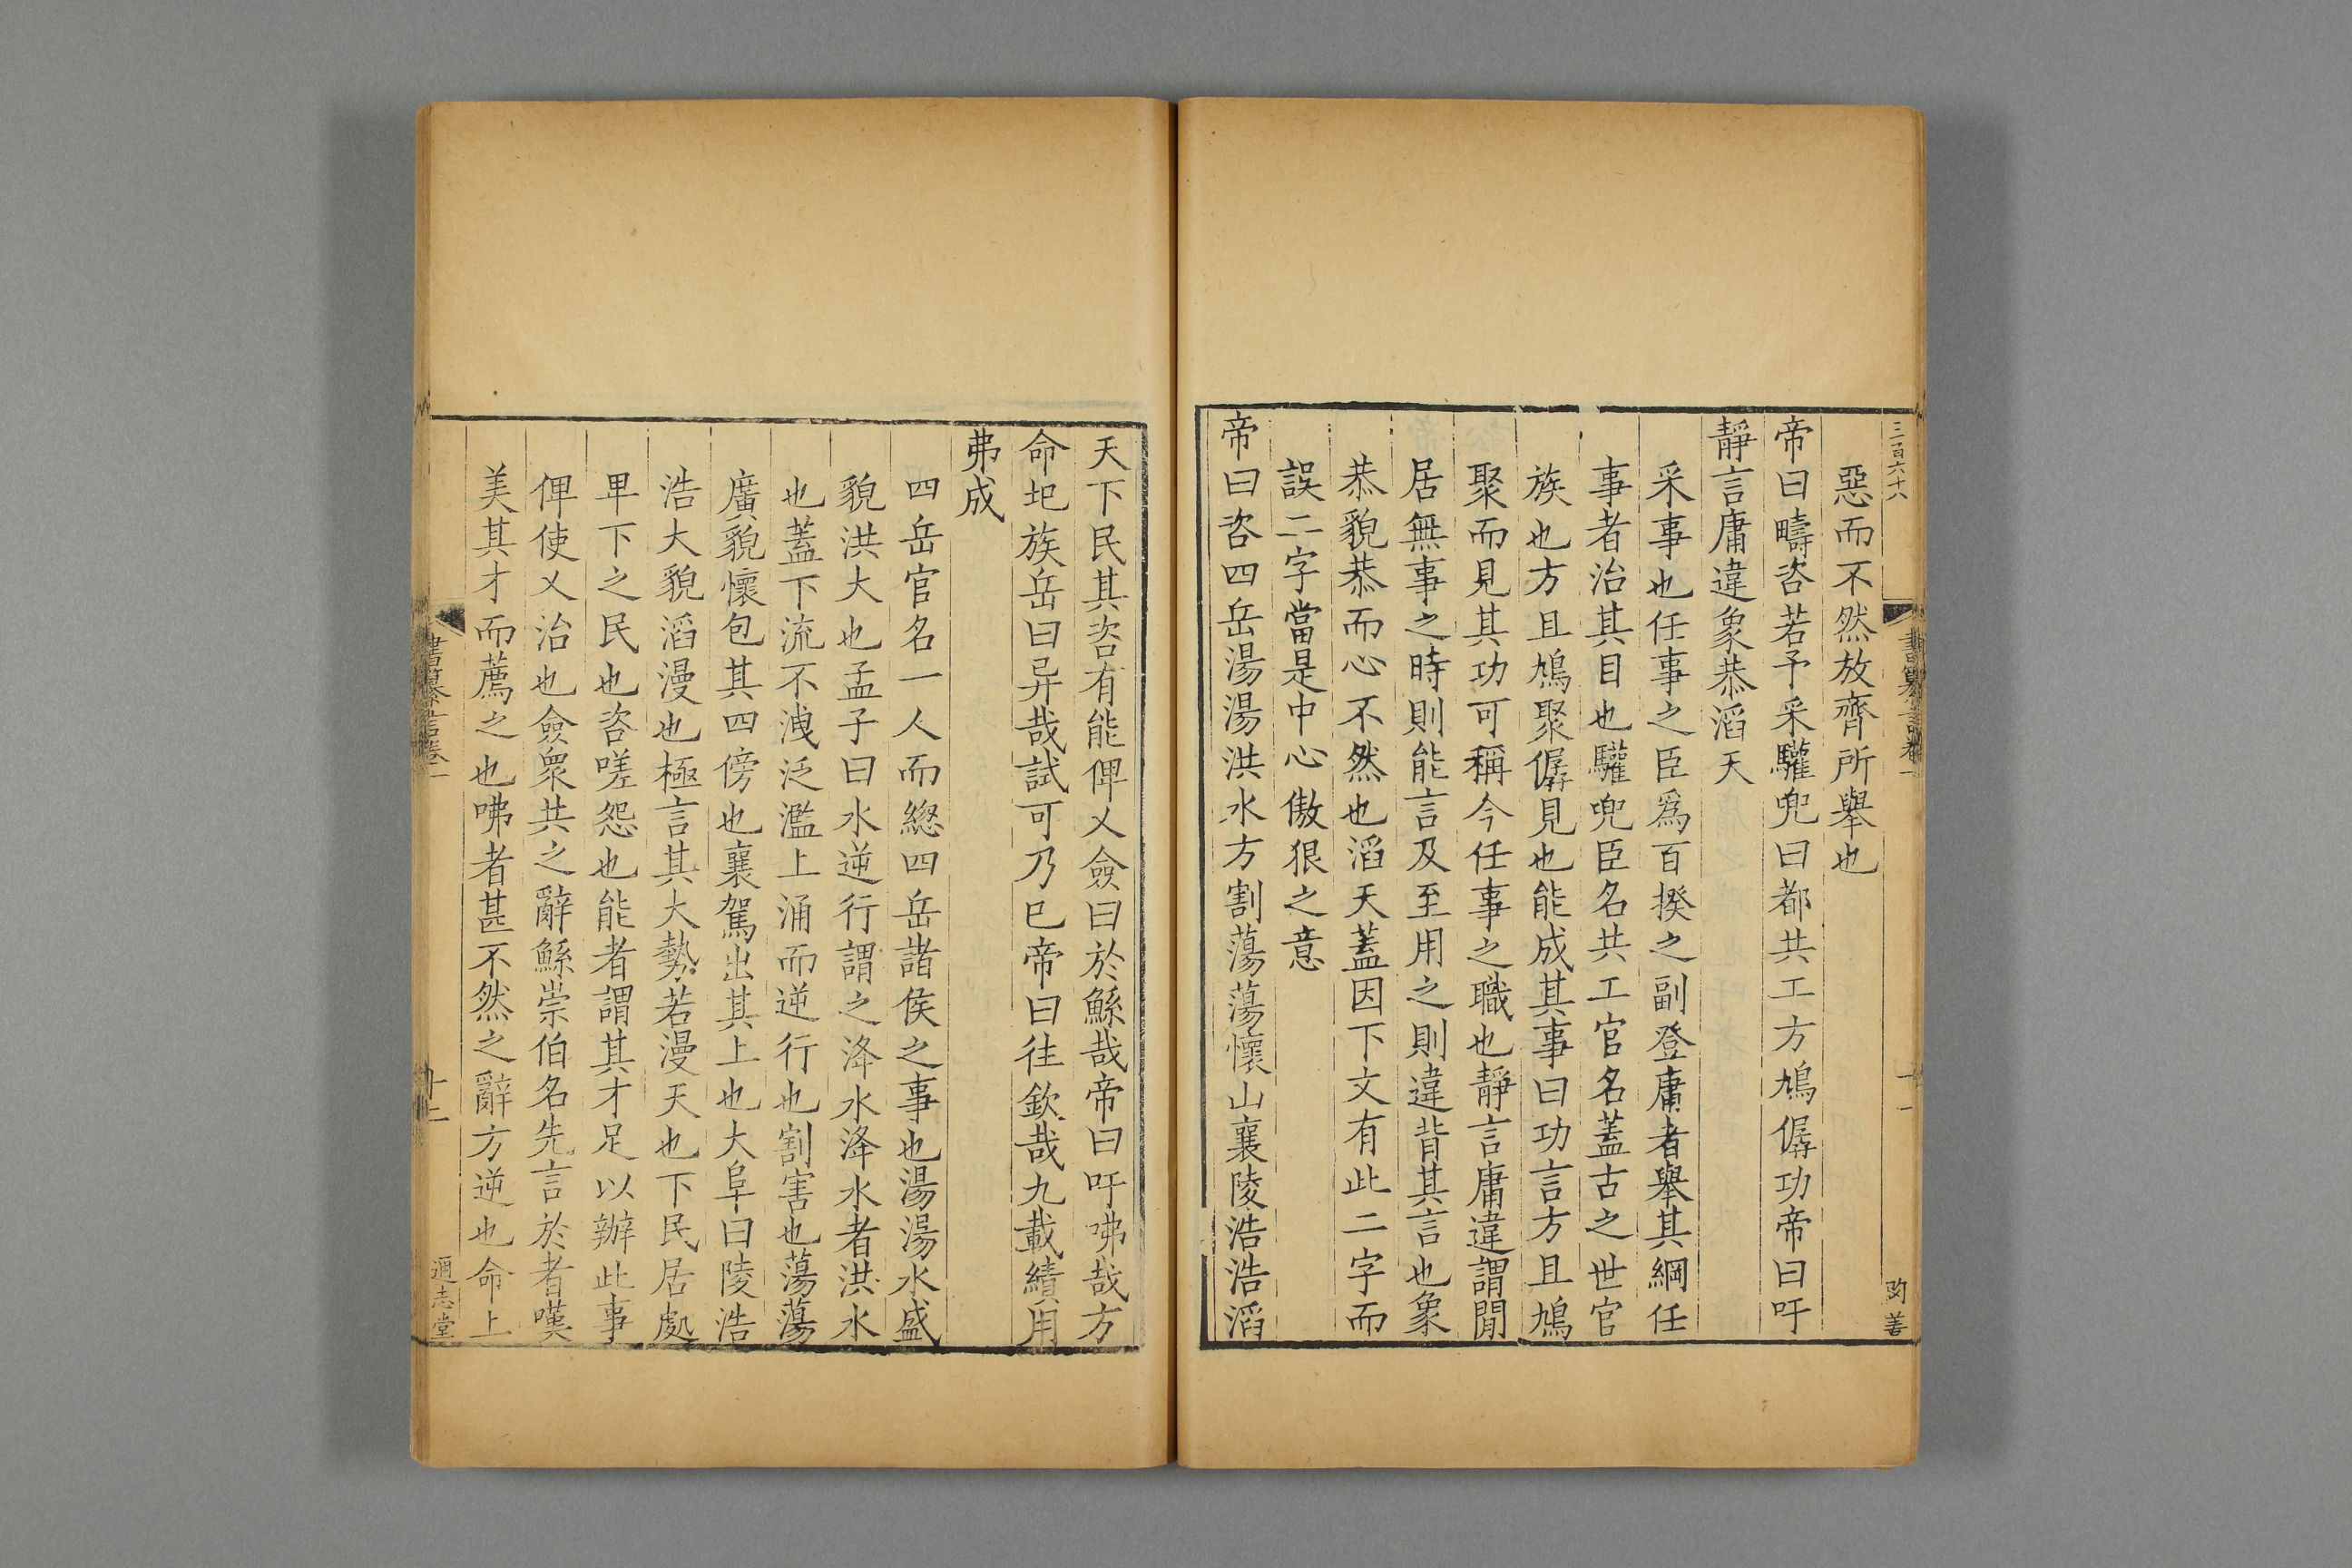 三百六十八
惡而不然放齊所舉也
帝曰疇咨若予采驩兜曰都共工方鳩僝功帝曰吁
靜言庸違象恭滔天
采事也任事之臣爲百揆之副登庸者舉其綱任
事者治其目也驩兜臣名共工官名蓋古之世官
族也方且鳩聚僝見也能成其事曰功言方且鳩
聚而見其功可稱今任事之職也靜言庸違謂閒
居無事之時則能言及至用之則違背其言也象
恭貌恭而心不然也滔天蓋因下文有此二字而
誤二字當是中心傲狠之意
帝曰咨四岳湯湯洪水方割蕩蕩懷山襄陵浩浩滔
天下民其咨有能俾乂僉曰於鯀哉帝曰吁咈哉方
命圮族岳曰异哉試可乃已帝曰往欽哉九載績用
弗成
四岳官名一人而緫四岳諸侯之事也湯湯水盛
貌洪大也孟子曰水逆行謂之洚水洚水者洪水
也蓋下流不洩泛濫上涌而逆行也割害也蕩蕩
廣貌懷包其四傍也襄駕出其上也大阜曰陵浩
浩大貌滔漫也極言其大勢若漫天也下民居處
卑下之民也咨嗟怨也能者謂其才足以辦此事
俾使乂治也僉衆共之辭鯀崇伯名先言於者嘆
美其才而薦之也咈者甚不然之辭方逆也命上
書纂言卷一
十二
通志堂